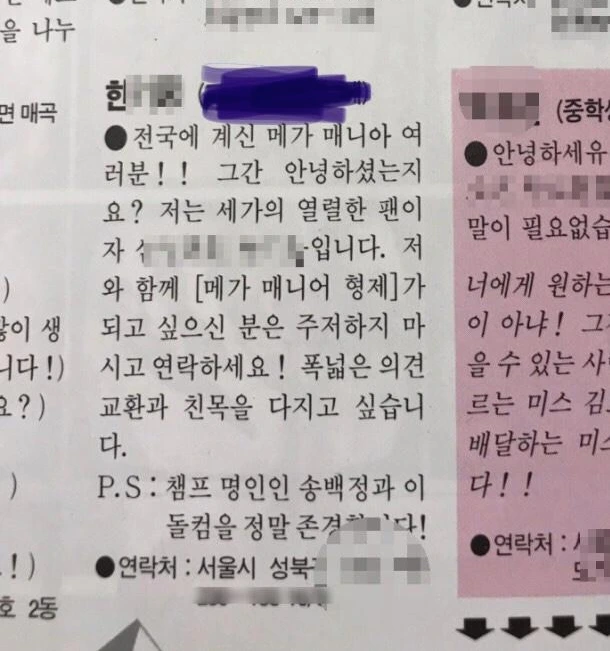 을 나누
면 매곡
)
많이 생
니다!)
요?)
)
.!)
호 2동
한
(
●전국에 계신 메가 매니아 여
러분!! 그간 안녕하셨는지
요? 저는 세가의 열렬한 팬이
자 입니다. 저
와 함께 [메가 매니어 형제]가
되고 싶으신 분은 주저하지 마
시고 연락하세요! 폭넓은 의견
교환과 친목을 다지고 싶습니
다.
P.S : 챔프 명인인 송백정과 이
돌컴을 정말 존경 다!
●연락처 : 서울시 성북
(중학생
●안녕하세유
말이 필요없습
너에게 원하는
이 아냐! 그
을 수 있는 사
르는 미스 김
배달하는 미스
다!!
●연락처 :